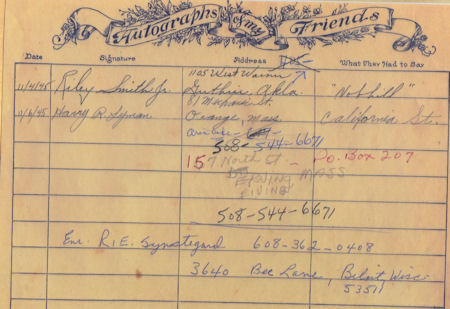 Autographs of my Friends
Date Signature Address What They Had to Say
11/4/45 Riley Smith Jr. 1105 West Warner
Guthrie, Okla. "Nob hill"
11/6/45 Harry R. Lyman Mechanic St.
Orange, Mass California St.
508-544-6671
157 North St. - P.O. Box 207
ERVING MASS
ERVING
508-544-6671
Enr. R.E. 608-362-0408
3640 Bee Lane, Beloit, Wisc.
53511